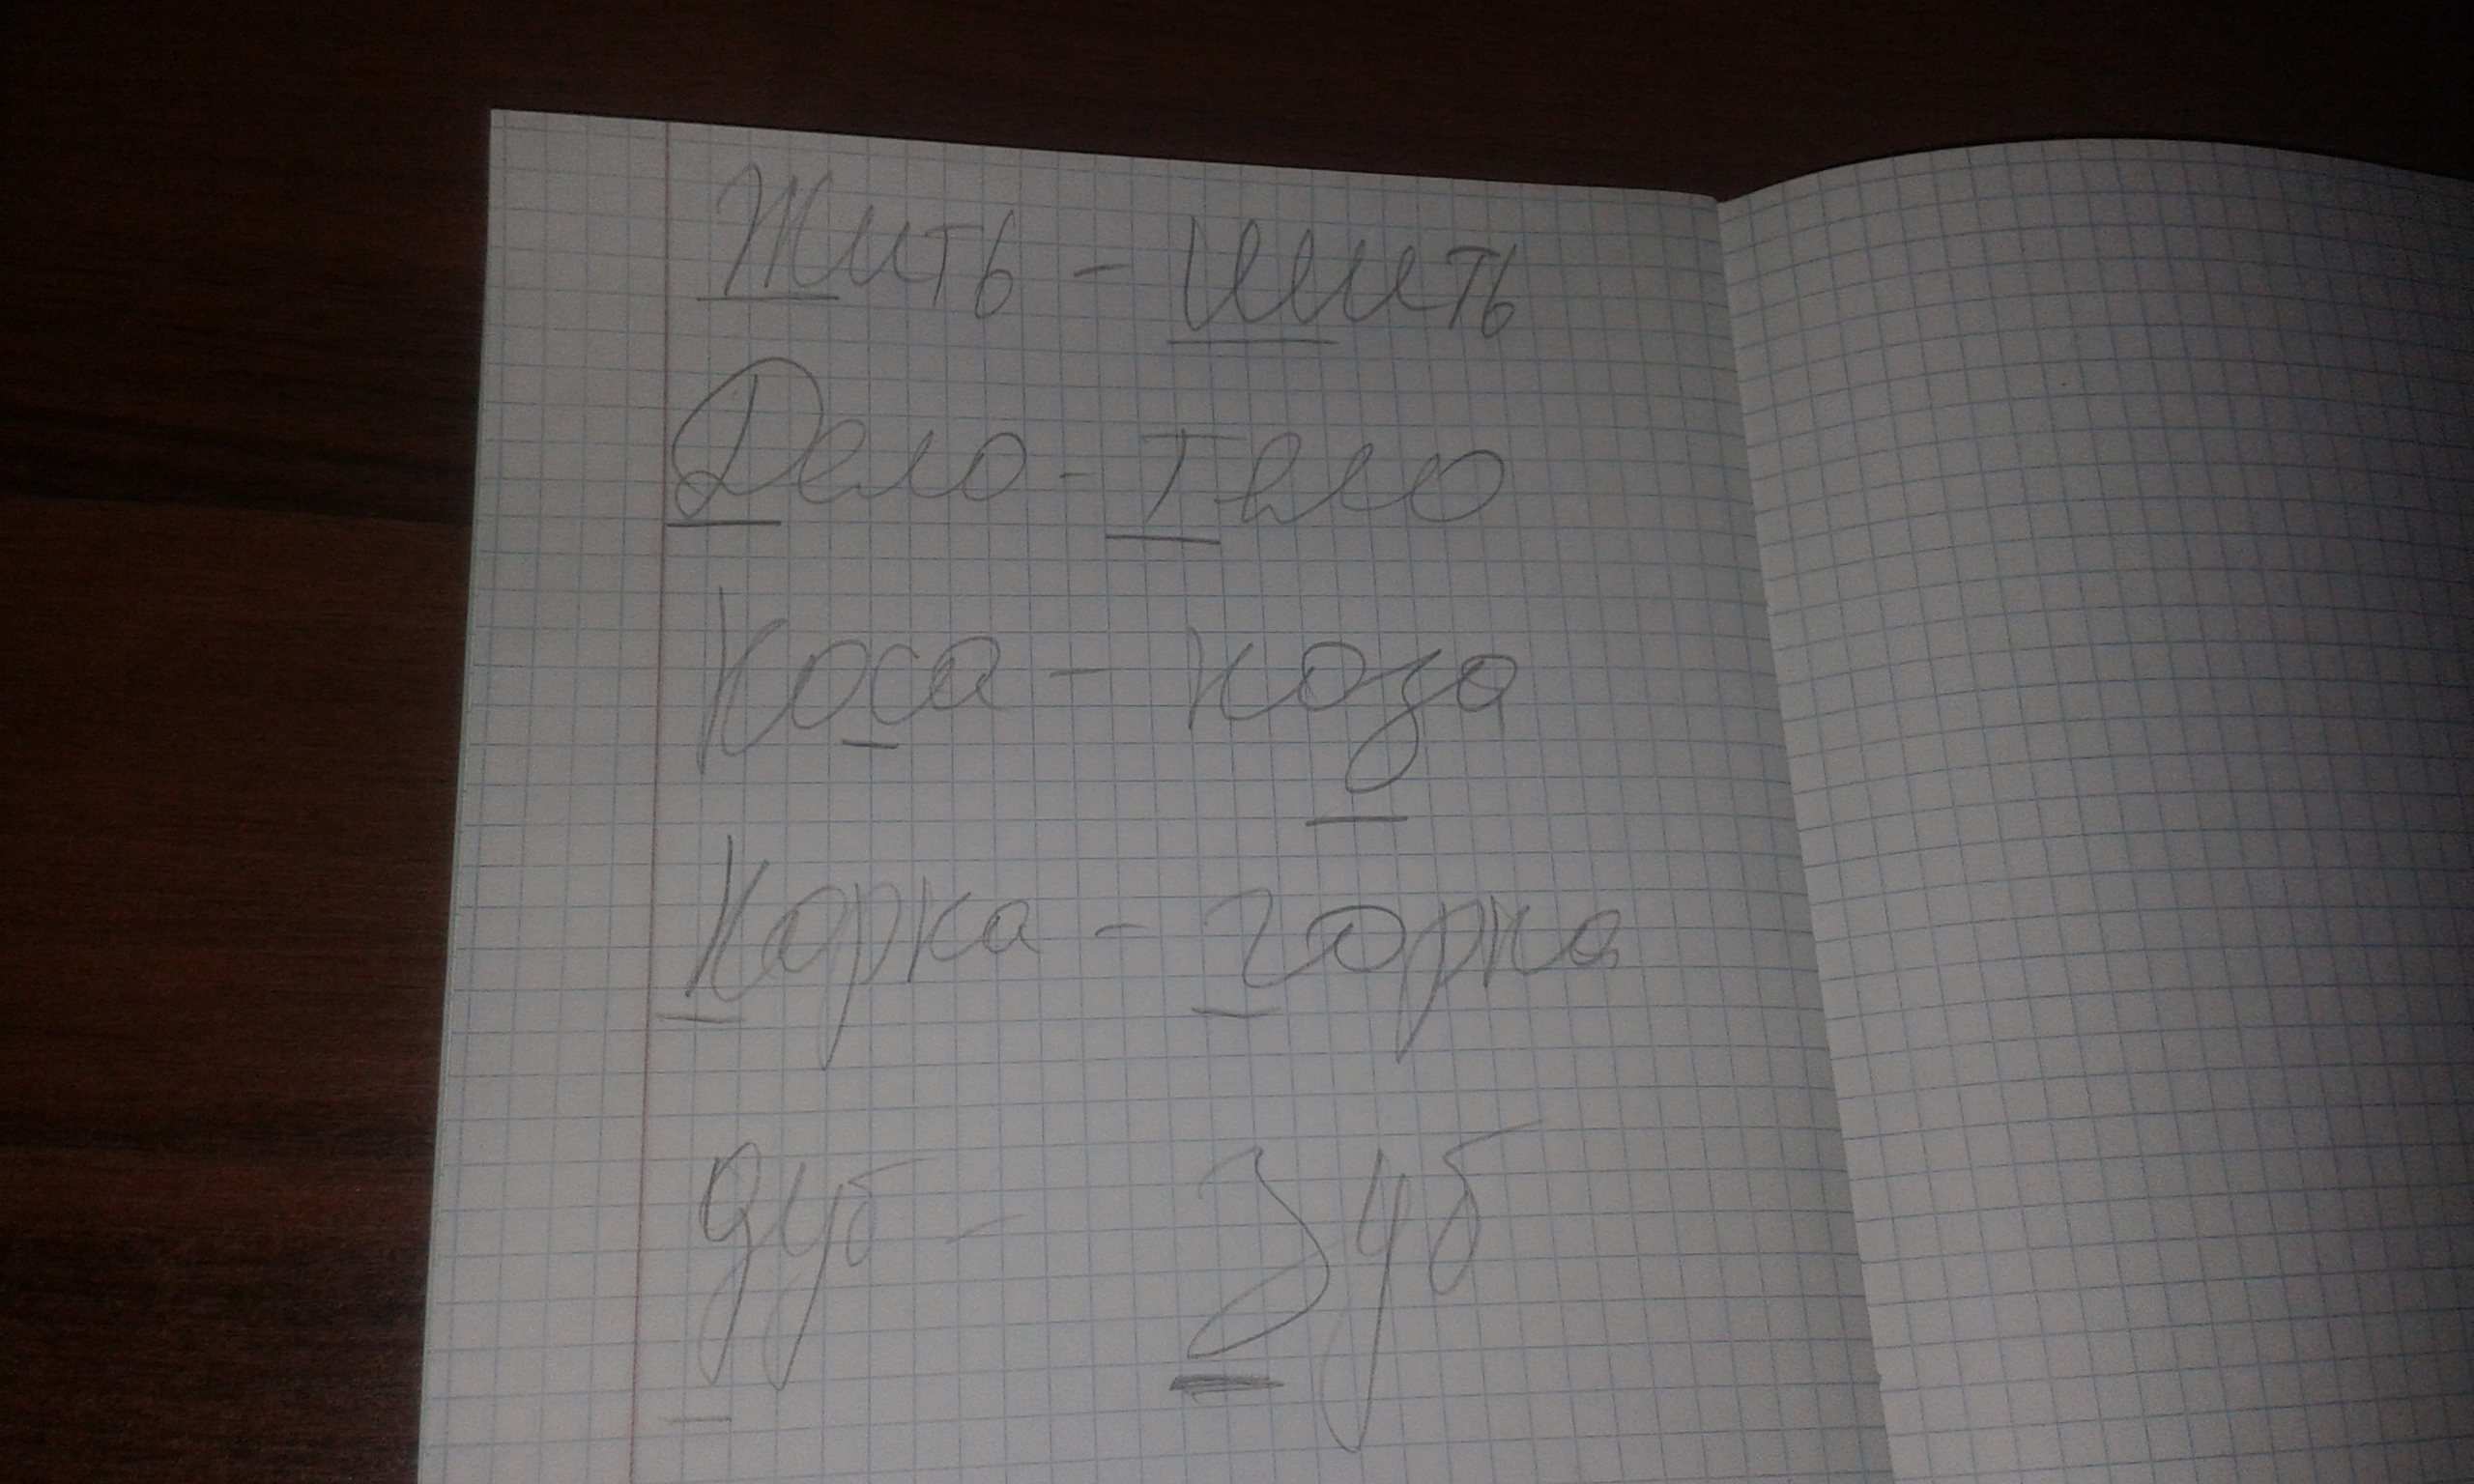 Жить - шить
Дело - тело
Коса - коза
Корка - горка
дуб - зуб